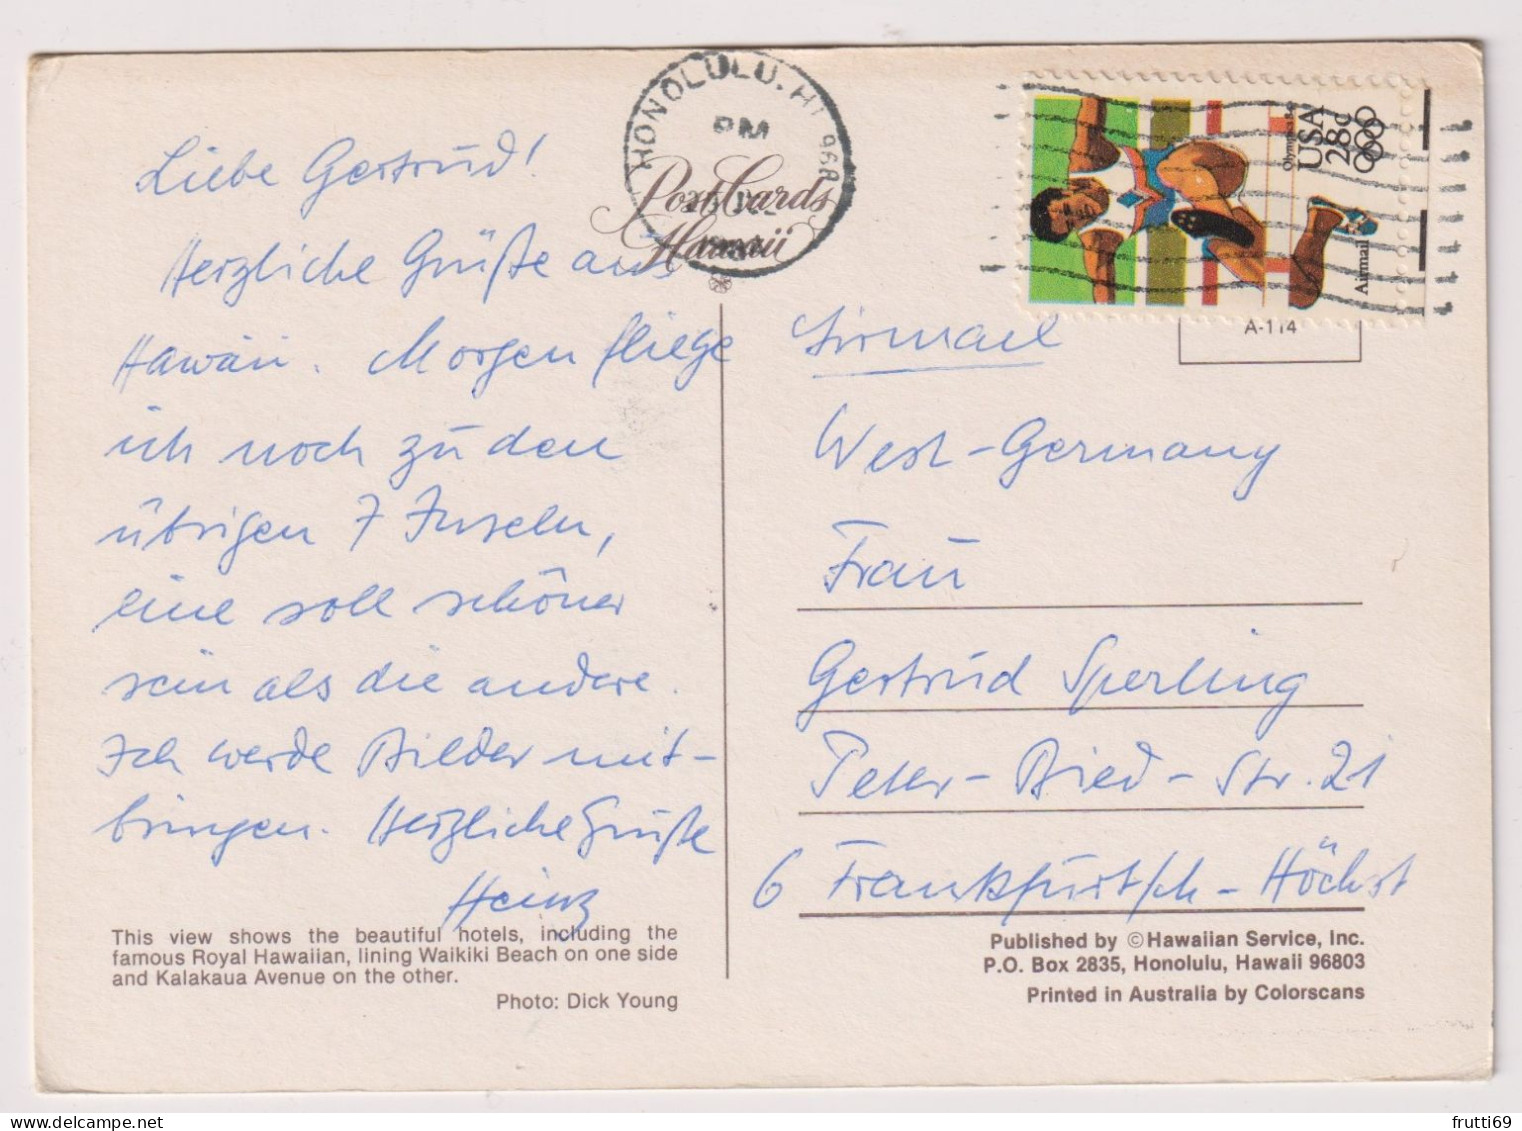 Liebe Gertrud!
Herzliche Grüße aus
Hawaii. Morgen fliege
ich noch zu den
übrigen 7 Inseln,
eine soll schöner
sein als die andere.
Ich werde Bilder mit-
bringen. Herzliche Grüße
Heinz
This view shows the beautiful hotels, including the
famous Royal Hawaiian, lining Waikiki Beach on one side
and Kalakaua Avenue on the other.
Photo: Dick Young
HONOLULU, HI 968
PM
Post Cards
Hawaii
USA
28c
Airmail
A-114
Airmail
West-Germany
Frau
Gertrud Sperling
Peter-Bied-Str. 21
6 Frankfurt/h-Höchst
Published by ©Hawaiian Service, Inc.
P.O. Box 2835, Honolulu, Hawaii 96803
Printed in Australia by Colorscans
frutti69